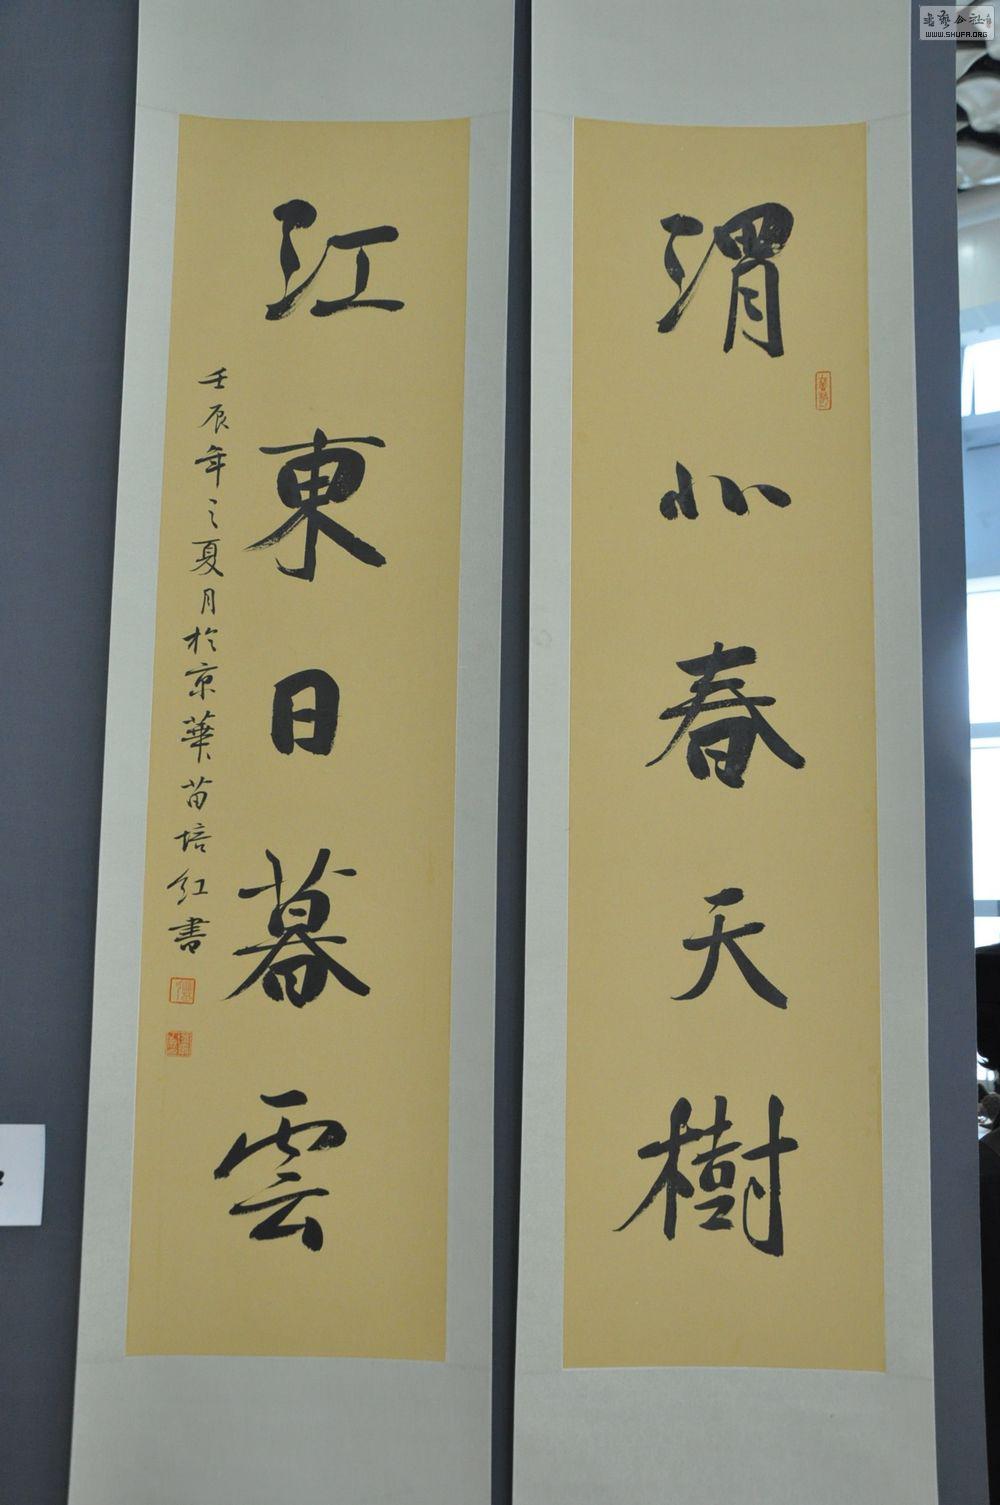 渭北春天樹
江東日暮雲
壬辰年之夏月於京華苗培紅書
WWW.SHUFA.ORG